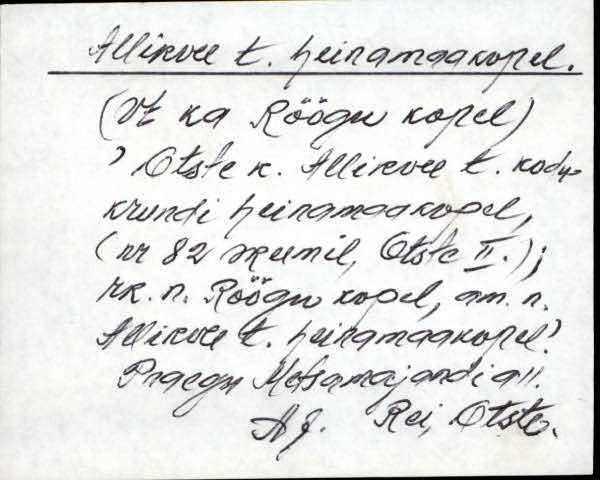 Allikvee t. heinamaakopel.
(Vt ka Röögu kopel)
' Otste k. Allikvee t. kodu-
krundi heinamaakopel,
(nr 82 skeemil, Otste II.);
rk. n. Röögu kopel, am. n.
Allikvee t. heinamaakopel'.
Praegu Metsamajandi all.
Rei, Otste.